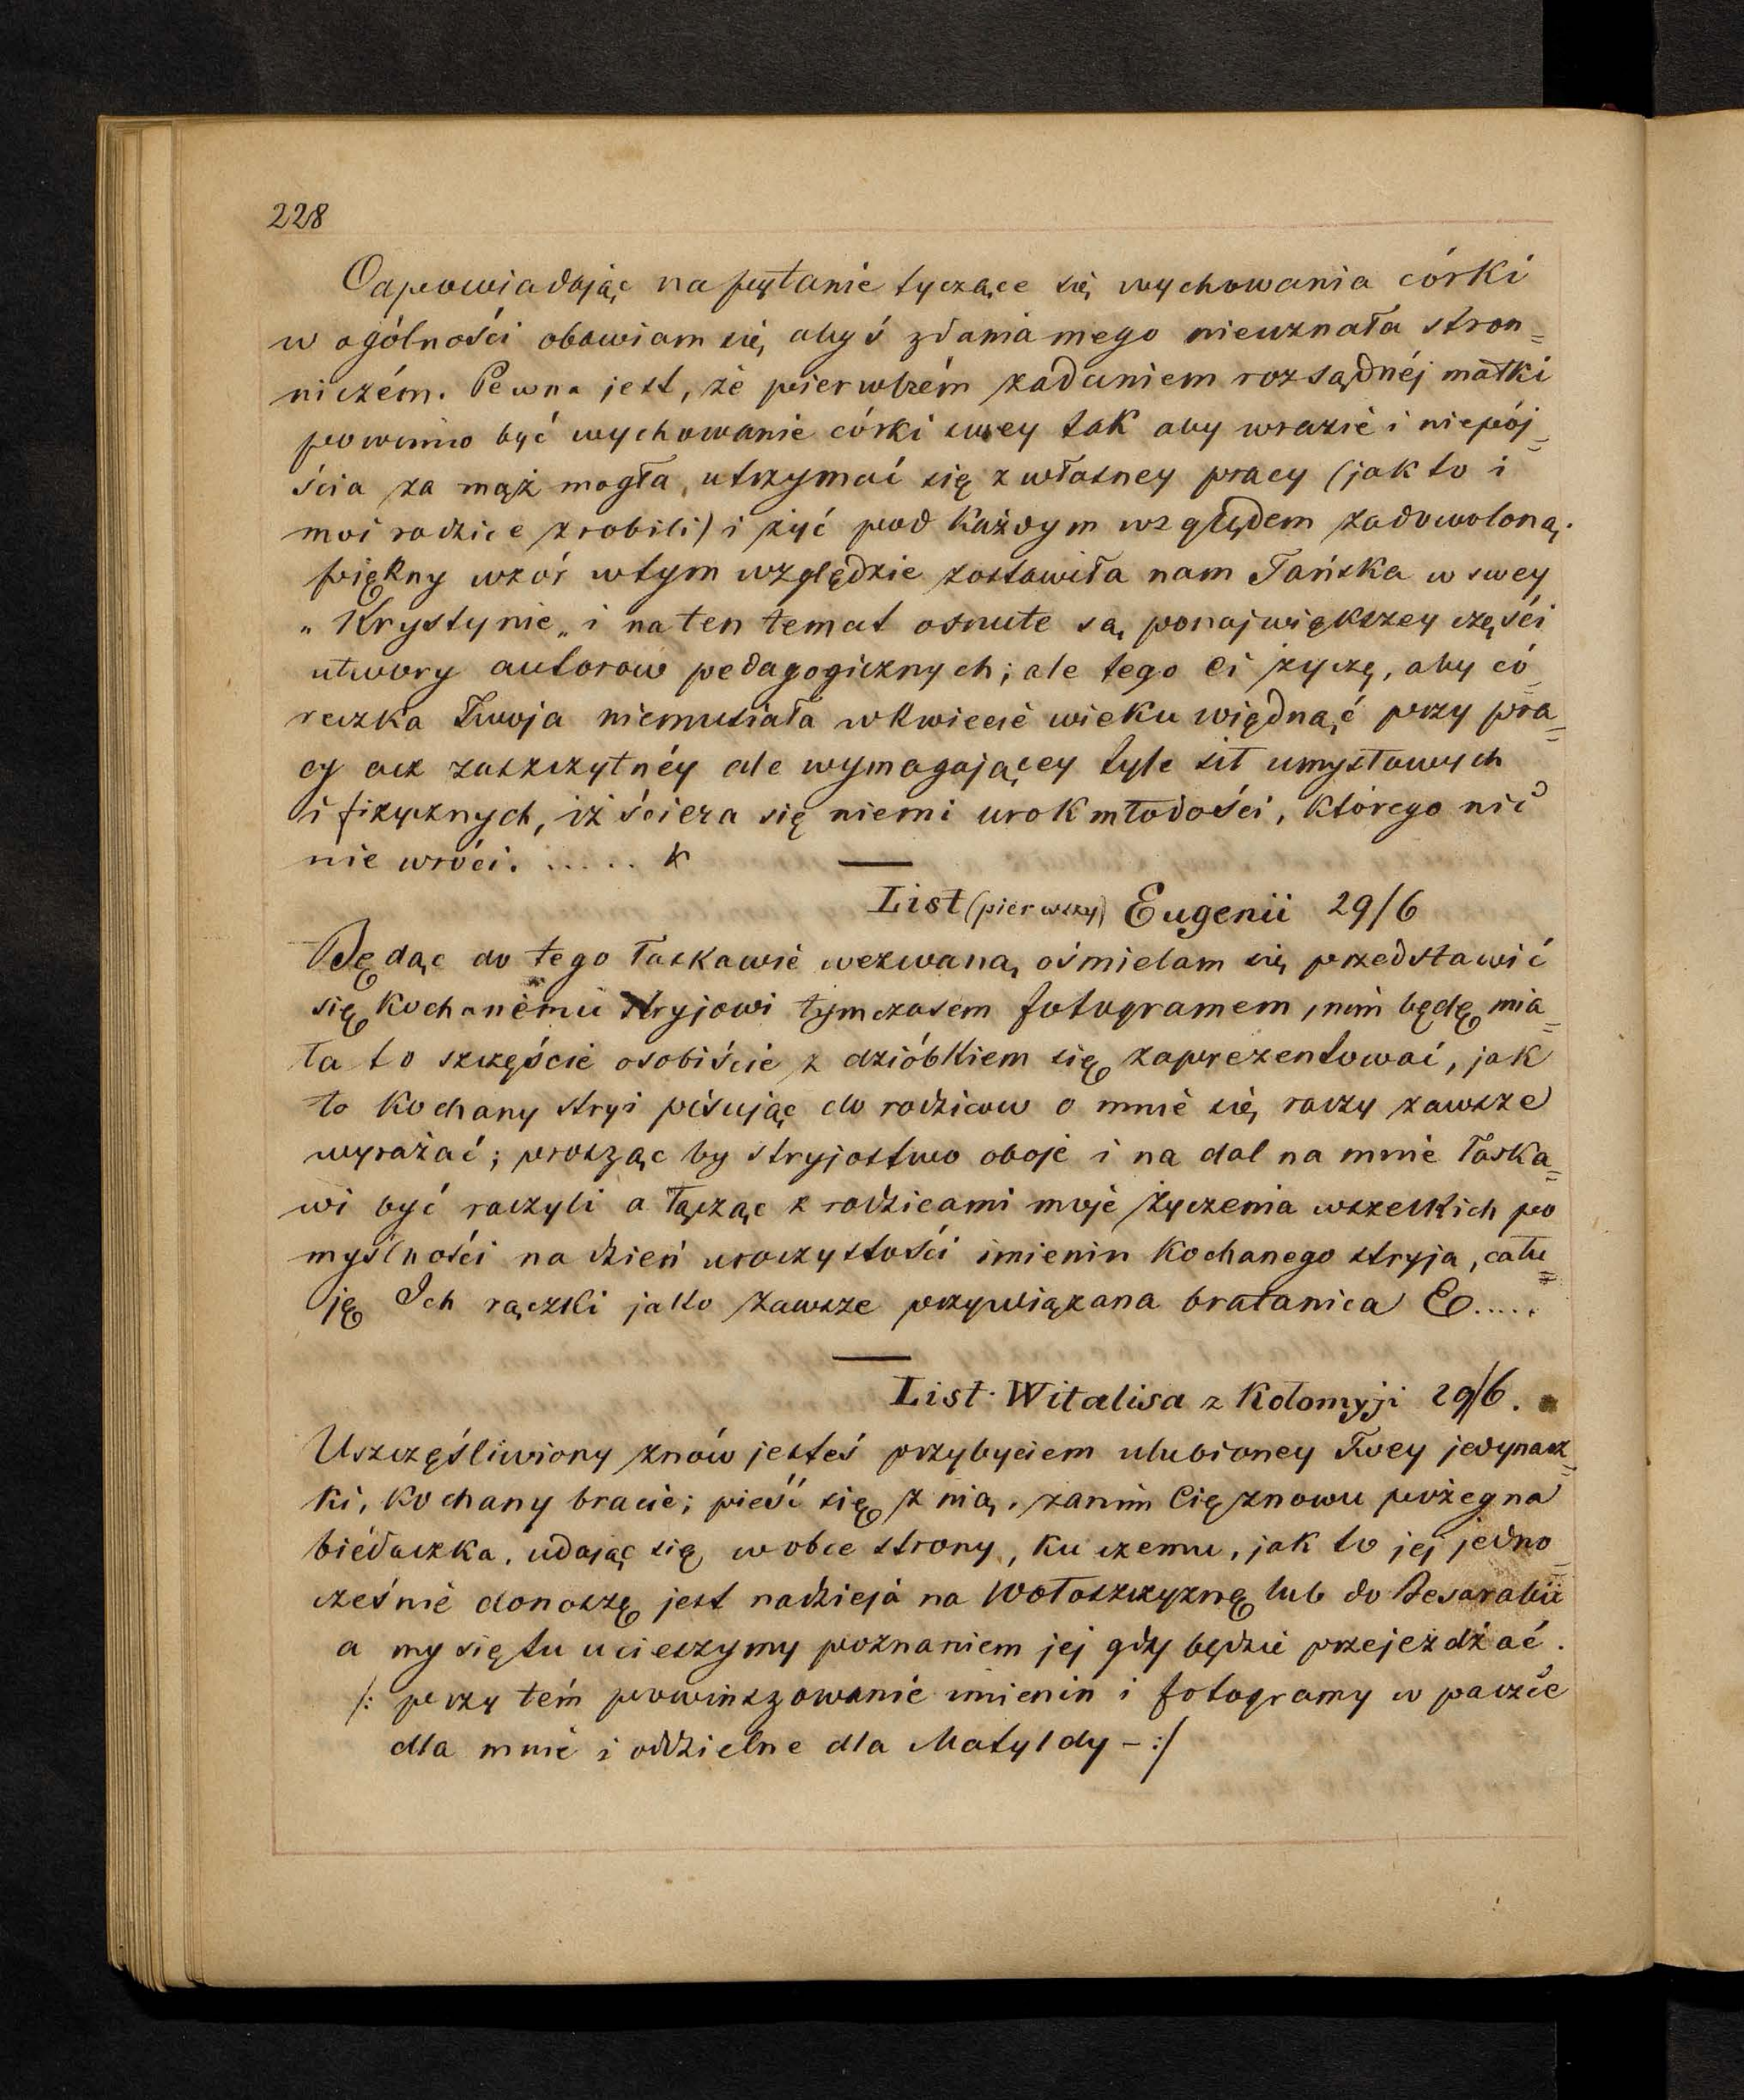 228
Odpowiadając na pytanie tyczące się wychowania córki
w ogólności obawiam się, abyś zdania mego nieuznała stron=
niczém. Pewna jest, że pierwszém zadaniem rozsądnéj matki
powinno być wychowanie córki swey tak aby wrazie i niepój=
ścia za mąż mogła, utrzymać się z własney pracy (jak to i
moi rodzice zrobili) i żyć pod każdym względem zadowoloną.
piękny wzór wtym względzie zostawiła nam Tańska w swey
„Krystynie„ i na ten temat osnute są, ponajwiększey części
utwory autorow pedagogicznych; ale tego Ci życzę, aby có=
reczka Twoja niemusiała wkwiecie wieku więdnąć przy pra=
cy acz zaszczytnéy ale wymagającey tyle sił umysłowych
i fizycznych, iż ściera się niemi urok młodości, którego nic
nie wróci. ..... k
List (pierwszy) Eugenii 29/6
Będąc do tego łaskawie wezwaną, ośmielam się przedstawić
się kochanemu stryjowi tymczasem fotogramem, nim będę mia=
ła to szczęście osobiście z dzióbkiem się zaprezentować, jak
to kochany stryi pisując do rodzicow o mnie się, raczy zawsze
wyrażać; prosząc by stryjostwo oboje i na dal na mnie łaska=
wi być raczyli a łącząc z rodzicami moje życzenia wszelkich po
myślności na dzień uroczystości imienin kochanego stryja, cału=
ję Ich rączki jako zawsze przywiązana bratanica E.....
List Witalisa z Kołomyji 29/6.
Uszczęśliwiony znów jesteś przybyciem ulubioney Twey jedynacz=
ki, kochany bracie; pieść się z nią, zanim Cię znowu pożegna
biédaczka, udając się w obce strony, ku czemu, jak to jej jedno=
cześnie donoszę jest nadzieja na Wołoszczyznę lub do Besarabii
a my się tu ucieszymy poznaniem jej gdy będzie przejeżdżać.
/: przy tém powinszowanie imienin i fotogramy w paczce
dla mnie i oddzielne dla Matyldy – :/